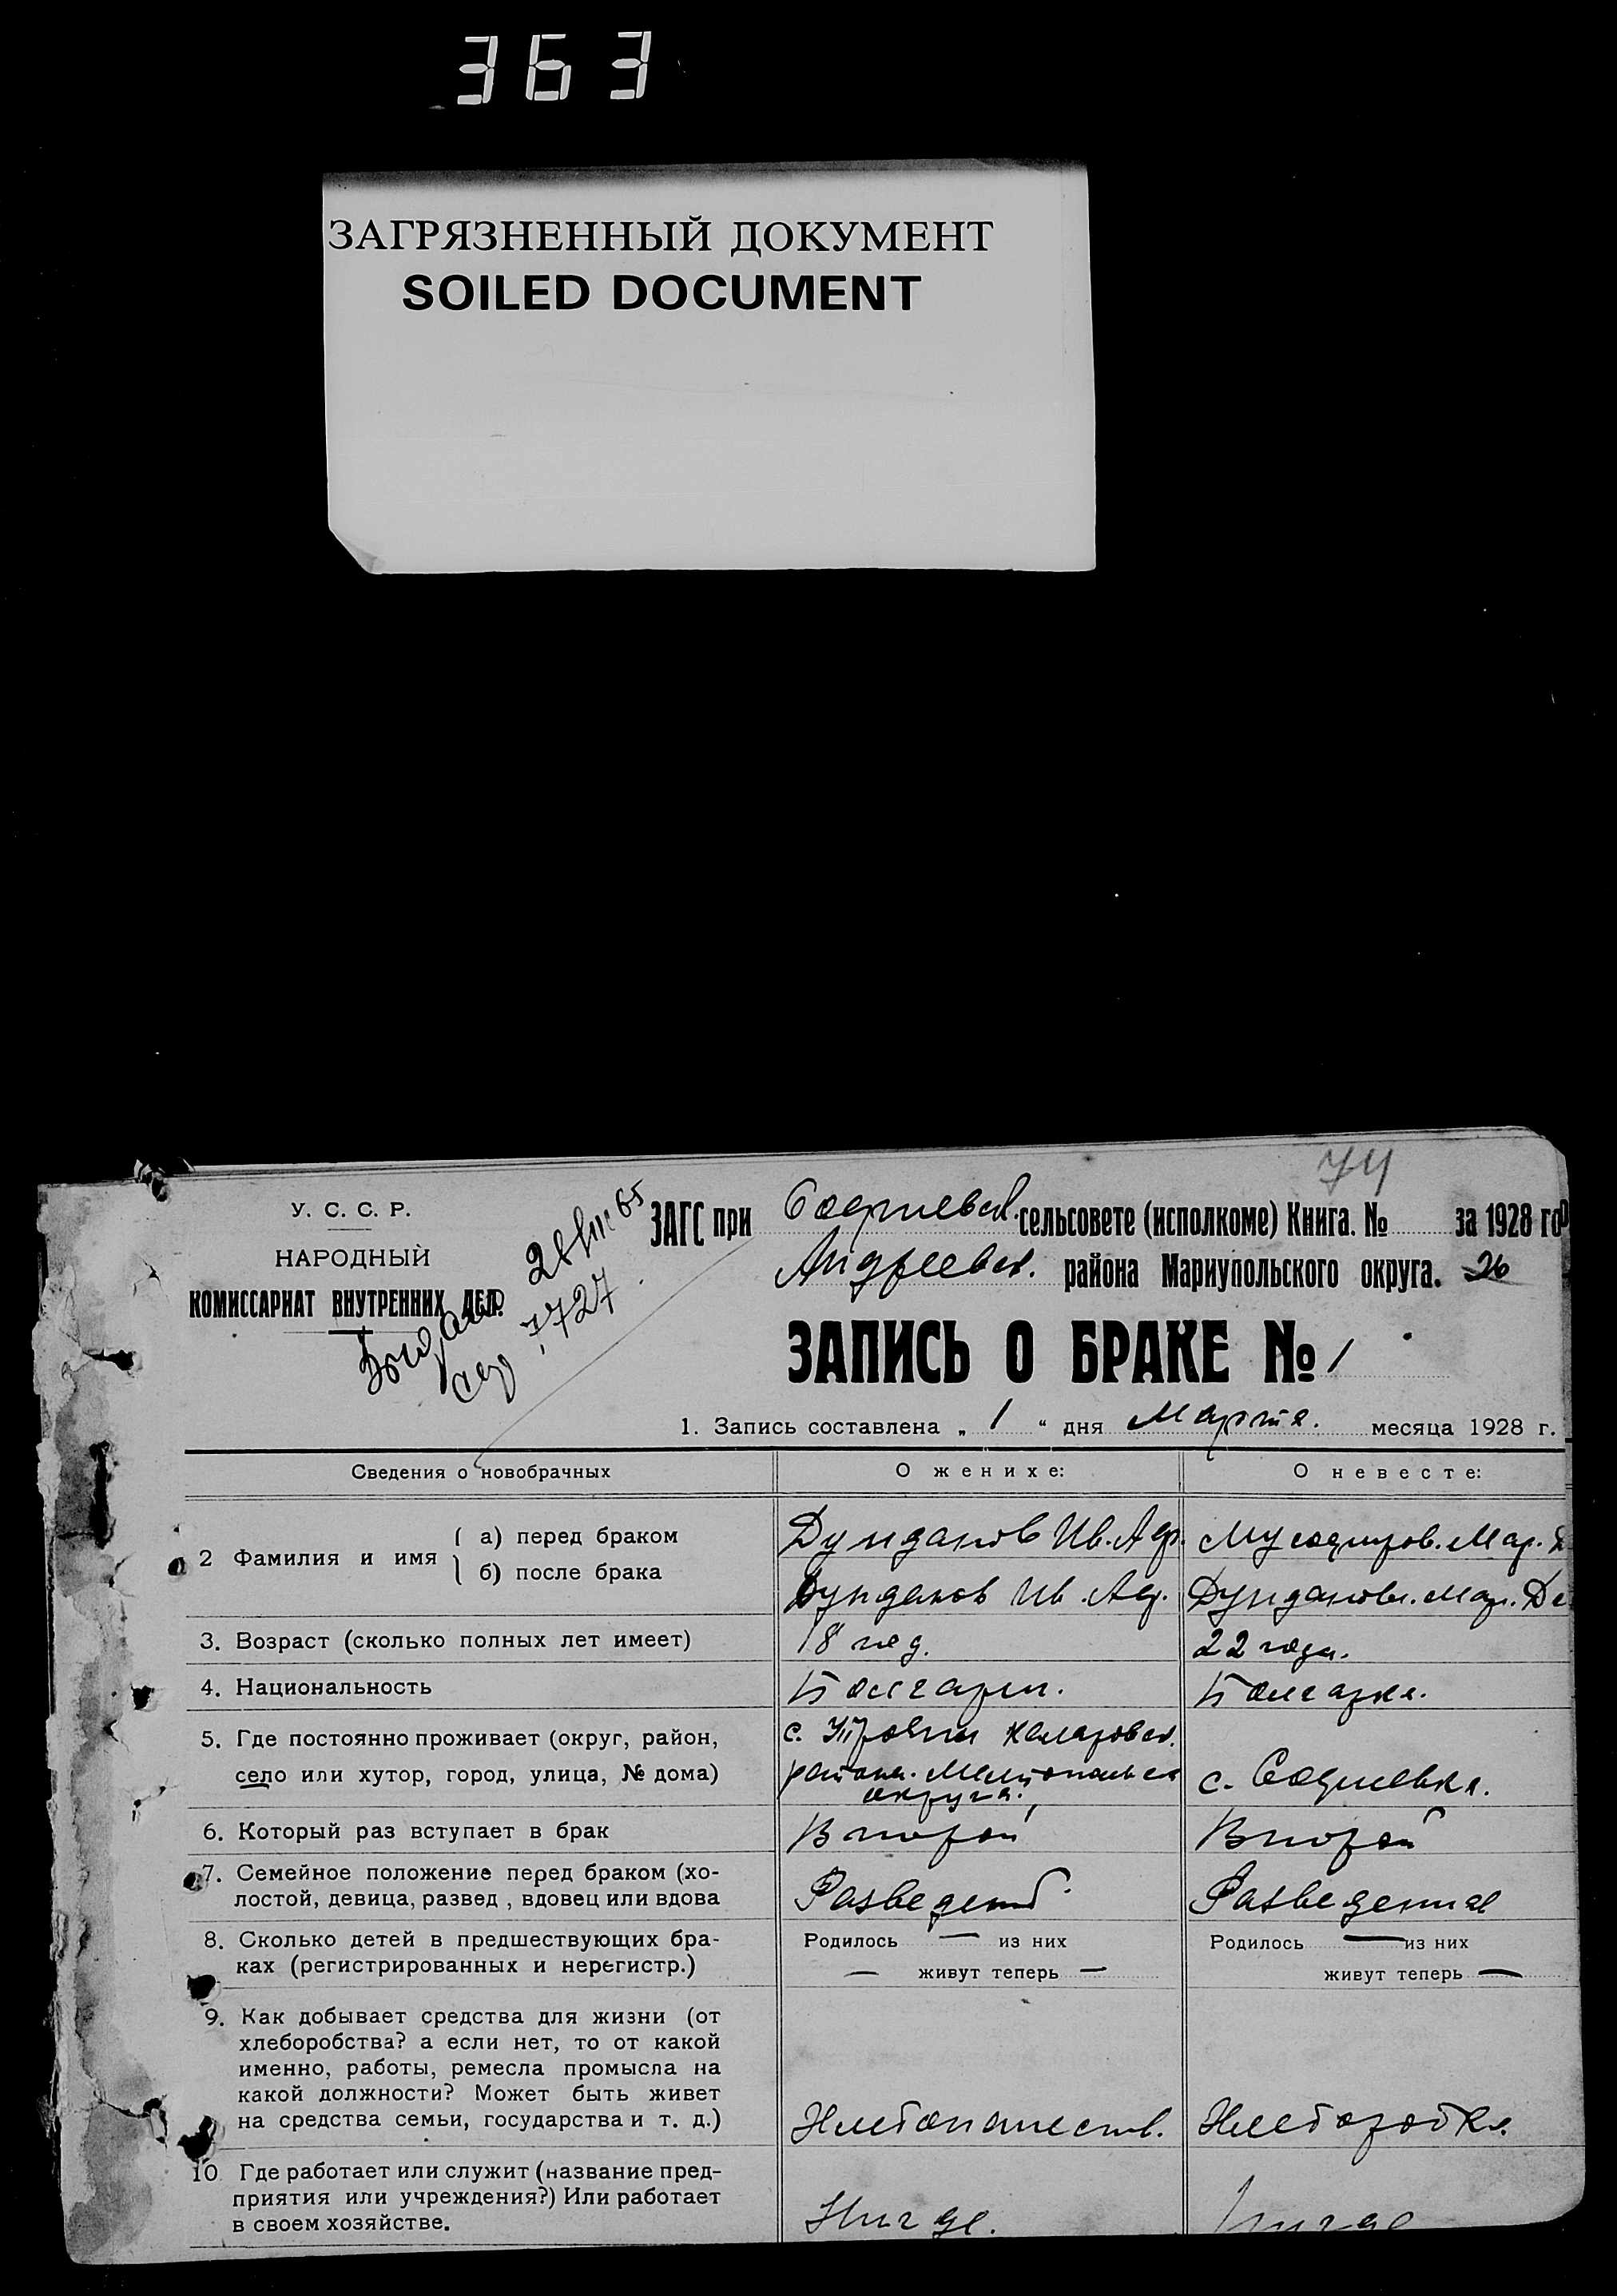 363
ЗАГРЯЗНЕННЫЙ ДОКУМЕНТ
SOILED DOCUMENT
74
У. С. С. Р.
НАРОДНЫЙ
КОМИССАРИАТ ВНУТРЕННИХ ДЕЛ.
28/VIII 65
7727
ЗАГС при Софиевск. сельсовете (исполкоме) Книга. № за 1928 год
Андреевск. района Мариупольского округа. 26
ЗАПИСЬ О БРАКЕ № 1
1. Запись составлена „ 1 “ дня Марта. месяца 1928 г.
Сведения о новобрачных О женихе: О невесте:
2 Фамилия и имя а) перед браком Дунданов Ив. Аф. Мар.
б) после брака Дунданов Ив. Аф. Дунданов. Мар. Дм
3. Возраст (сколько полных лет имеет) 18 год. 22 года.
4. Национальность Болгарин. Болгарка.
5. Где постоянно проживает (округ, район, с. Трояны
село или хутор, город, улица, № дома) района. Мелитопольск с. Софиевка.
округа.
6. Который раз вступает в брак Второй Второй
7. Семейное положение перед браком (хо-
лостой, девица, развед , вдовец или вдова Разведен Разведеная
8. Сколько детей в предшествующих бра- Родилось — из них Родилось — из них
ках (регистрированных и нерегистр.) — живут теперь — живут теперь —
9. Как добывает средства для жизни (от
хлеборобства? а если нет, то от какой
именно, работы, ремесла промысла на
какой должности? Может быть живет
на средства семьи, государства и т. д.) Хлебопашеств. Хлеборобка.
10 Где работает или служит (название пред-
приятия или учреждения?) Или работает
в своем хозяйстве. Нигде. Нигде